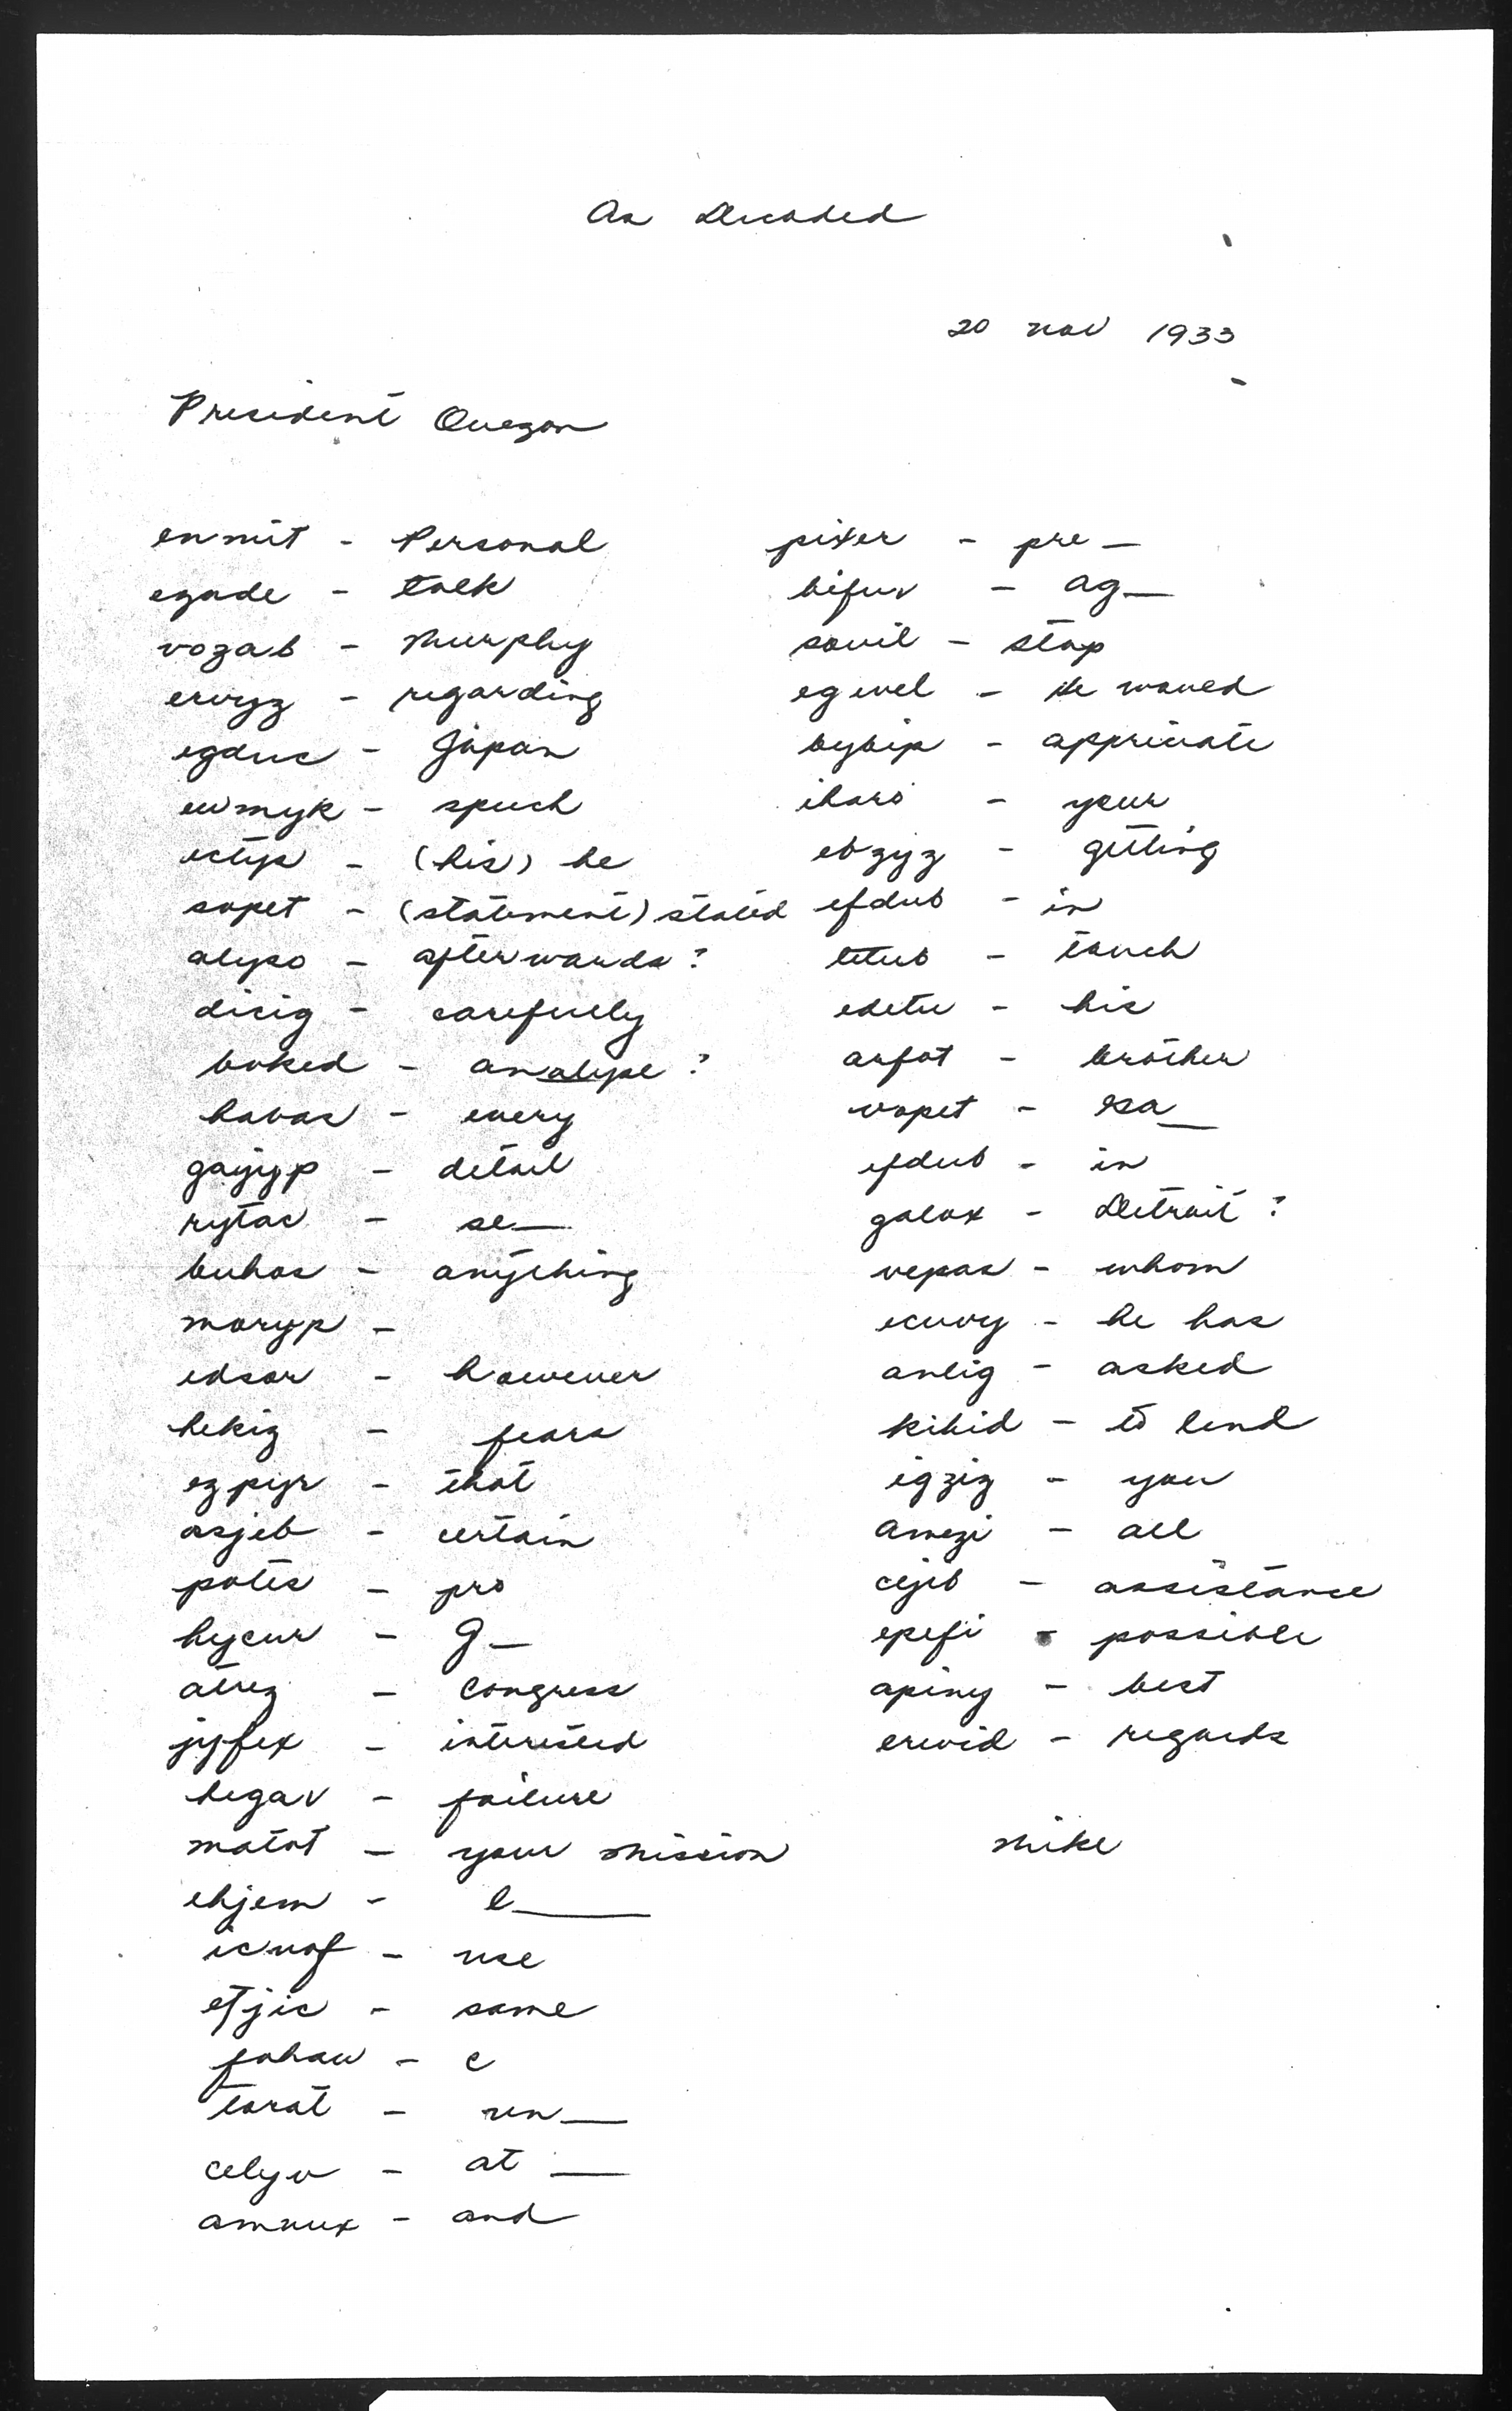 As Decoded
20 Nov 1933
President Quezon
enmit - Personal
ezade - talk
vozab - Murphy
ervyz - regarding
egduc - Japan
ewmyk - speech
ectyp - (his) he
sopet - (statement) stated
alypo - afterwards?
dicig - carefully
boked - analype?
havas - every
gayyp - detail
rytac - se__
buhos - anything
moryp -
edsor - however
hekig - fears
ezpyr - that
asjeb - certain
potes - pro
hycur - g_
atrez - Congress
jyfex - interested
hegav - failure
matot - your mission
ehjem - l____
icnof - use
etjic - same
fohaw - c
tarat - un__
celyv - at __
amnux - and
pixer - pre_
bifuv - ag__
sovil - stop
egevel - he moved
bybip - appreciate
iharo - your
ebzyz - getting
efdub - in
letub - touch
edetu - his
arfot - brother
vopet - rsa__
efdub - in
galox - Detroit?
vepas - whom
ecuvy - he has
anlig - asked
kihid - to lend
igzig - you
amezi - all
cejib - assistance
epefi - possible
apiny - best
erevid - regards
Mike